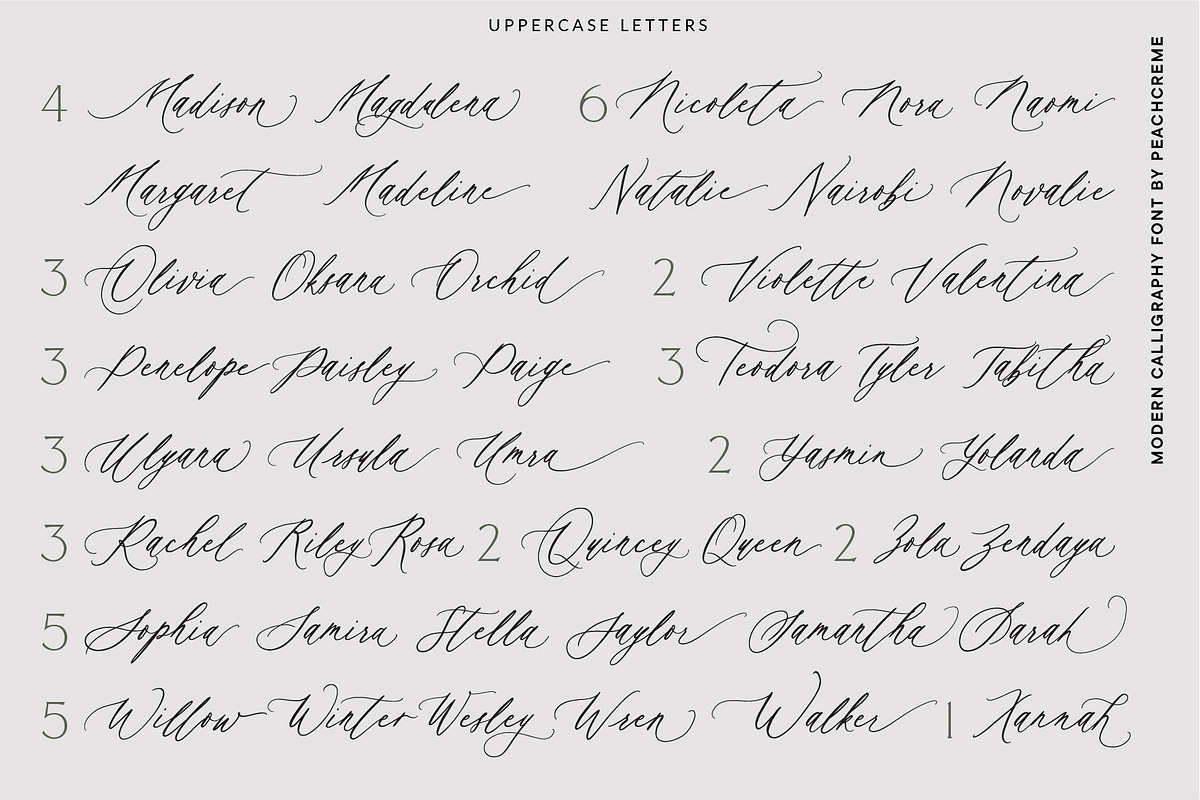 UPPERCASE LETTERS
4 Madison Magdalena 6 Nicoleta Nora Naomi
Margaret Madeline Natalie Nairobi Novalie
3 Olivia Oksana Orchid 2 Violette Valentina
3 Penelope Paisley Paige 3 Teodora Tyler Tabitha
3 Ulyana Ursula Umra 2 Yasmin Yolanda
3 Rachel Riley Rosa 2 Quincey Queen 2 Zola Zendaya
5 Sophia Samira Stella Saylor Samantha Sarah
5 Willow Winter Wesley Wren Walker 1 Xannah
MODERN CALLIGRAPHY FONT BY PEACHCREME